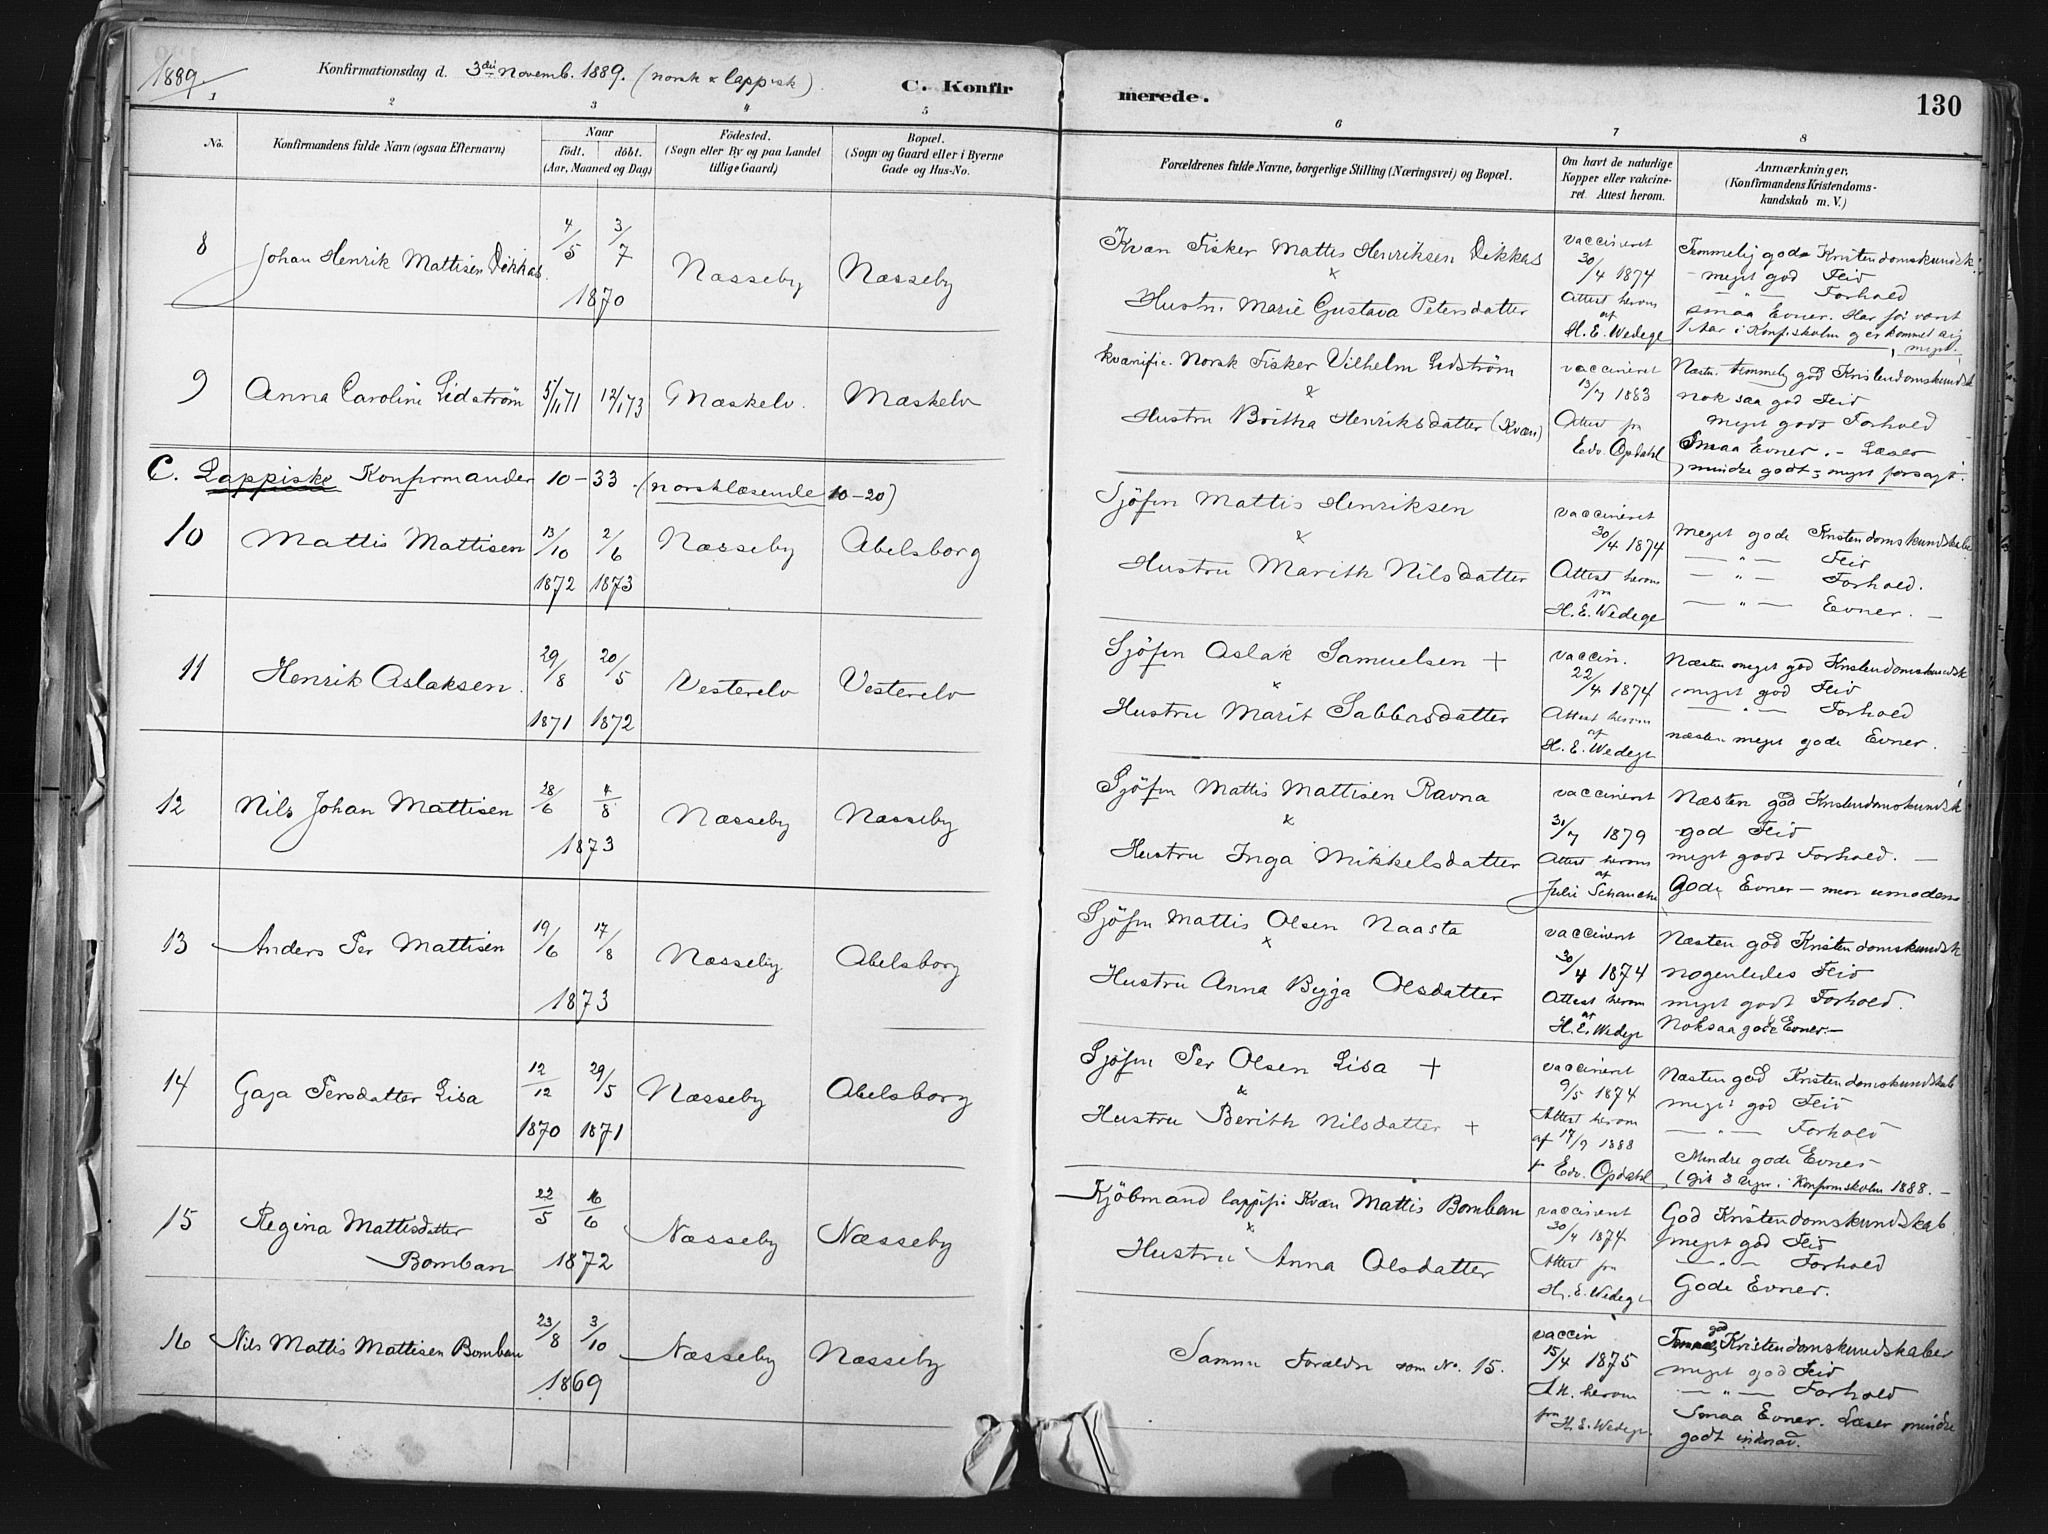 1889.
Konfirmationsdag d. 3die Novemb. 1889. (norsk & lappisk)
C. Konfirmerede.
130
1 2 3 4 5 6 7 8
No.
Konfirmandens fulde Navn (ogsaa Efternavn)
Naar
født. døbt.
(Aar, Maaned og Dag)
Fødested.
(Sogn eller By og paa Landet
tillige Gaard)
Bopæl.
(Sogn og Gaard eller i Byerne
Gade og Hus-No.
Forældrenes fulde Navne, borgerlige Stilling (Næringsvei) og Bopæl.
Om havt de naturlige
Kopper eller vakcine-
ret. Attest herom.
Anmærkninger.
(Konfirmandens Kristendoms-
kundskab m. V.)
8
Johan Henrik Mattisen Dikkas.
4/5 3/7
1870
Næsseby
Næsseby
Kvæn Fisker Mattis Henriksen Dikkas
&
Hustru Marie Gustava Petersdatter
vaccineret
30/4 1874
Attest herom
af
H. E. Wedege
Temmelig gode Kristendomskundsk.
meget god Flid
— " — Forhold
smaa Evner. Har før været
1 Aar i Konf.skolen
9
Anna Caroline Lidström
5/1 71 12/1 73
Mæskelv.
Mæskelv
kvænfie. Norsk Fisker Vilhelm Lidström
&
Hustru Britha Henriksdatter (Kvæn)
vaccineret
13/7 1883
Attest fra
Edv. Opdahl
Næstn. temmelig god Kristendomskundsk
nok saa god Flid
meget godt Forhold
Smaa Evner. - Læser
mindre godt; meget forsagt.
C. Lappiske Konfirmander 10-33. (norsklæsende 10-20)
10
Mattis Mattisen
13/10 2/6
1872 1873
Næsseby
Abelsborg
Sjöfin Mattis Henriksen
&
Hustru Marith Nilsdatter
vaccineret
30/4 1874
Attest herom
fra
H. E. Wedege
Meget gode Kristendomskundskaber
— " — Flid
— " — Forhold.
— " — Evner. —
11
Henrik Aslaksen.
29/8 20/5
1871 1872
Vesterelv
Vesterelv
Sjöfin Aslak Samuelsen +
&
Hustru Marit Sabbasdatter
vaccin.
22/4 1874
Attest herom
af
H. E. Wedege
Næsten meget god Kristendomskundsk
meget god Flid
— " — Forhold
næsten meget gode Evner.
12
Nils Johan Mattisen
28/6 4/8
1873
Næsseby
Næsseby
Sjöfin Mattis Mattisen Ravna
&
Hustru Inga Mikkelsdatter
vaccineret
31/7 1879
Attest herom
af
Julie Schanche
Næsten god Kristendomskundsk
god Flid
meget godt Forhold. —
Gode Evner — men umoden
13
Anders Per Mattisen
19/6 17/8
1873
Næsseby
Abelsborg
Sjöfin Mattis Olsen Naasta
&
Hustru Anna Bigga Olsdatter
vaccineret
30/4 1874
Attest herom
af
H. E. Wedege
Næsten god Kristendomskundsk
nogenledes Flid
meget godt Forhold.
Noksaa gode Evner. —
14
Gaja Persdatter Lisa
12/12 29/5
1870 1871
Næsseby
Abelsborg
Sjöfin Per Olsen Lisa +
&
Hustru Berith Nilsdatter +
vaccineret
9/5 1874
Attest herom
af 17/9 1888
f Edv. Opdahl
Næsten god Kristendomskundskab
meget god Flid
— " — Forhold
Mindre gode Evner
(Gik 3 Uger i Konfirmskolen 1888. —
15
Regina Mattisdatter
Bomban
22/5 16/6
1872
Næsseby
Næsseby
Kjöbmand lappisi Kvæn Mattis Bomban
&
Hustru Anna Olsdatter
vaccineret
30/4 1874
Attest fra
H. E. Wedege
God Kristendomskundskab
meget god Flid
— " — Forhold
Gode Evner.
16
Nils Mattis Mattisen Bomban
23/8 3/10
1869
Næsseby
Næsseby
Samme Forældre som No. 15.
vaccin
15/4 1875
Att. herom
fra
H. E. Wedege.
god Kristendomskundskaber
meget god Flid
— " — Forhold
Smaa Evner. Læser mindre
godt